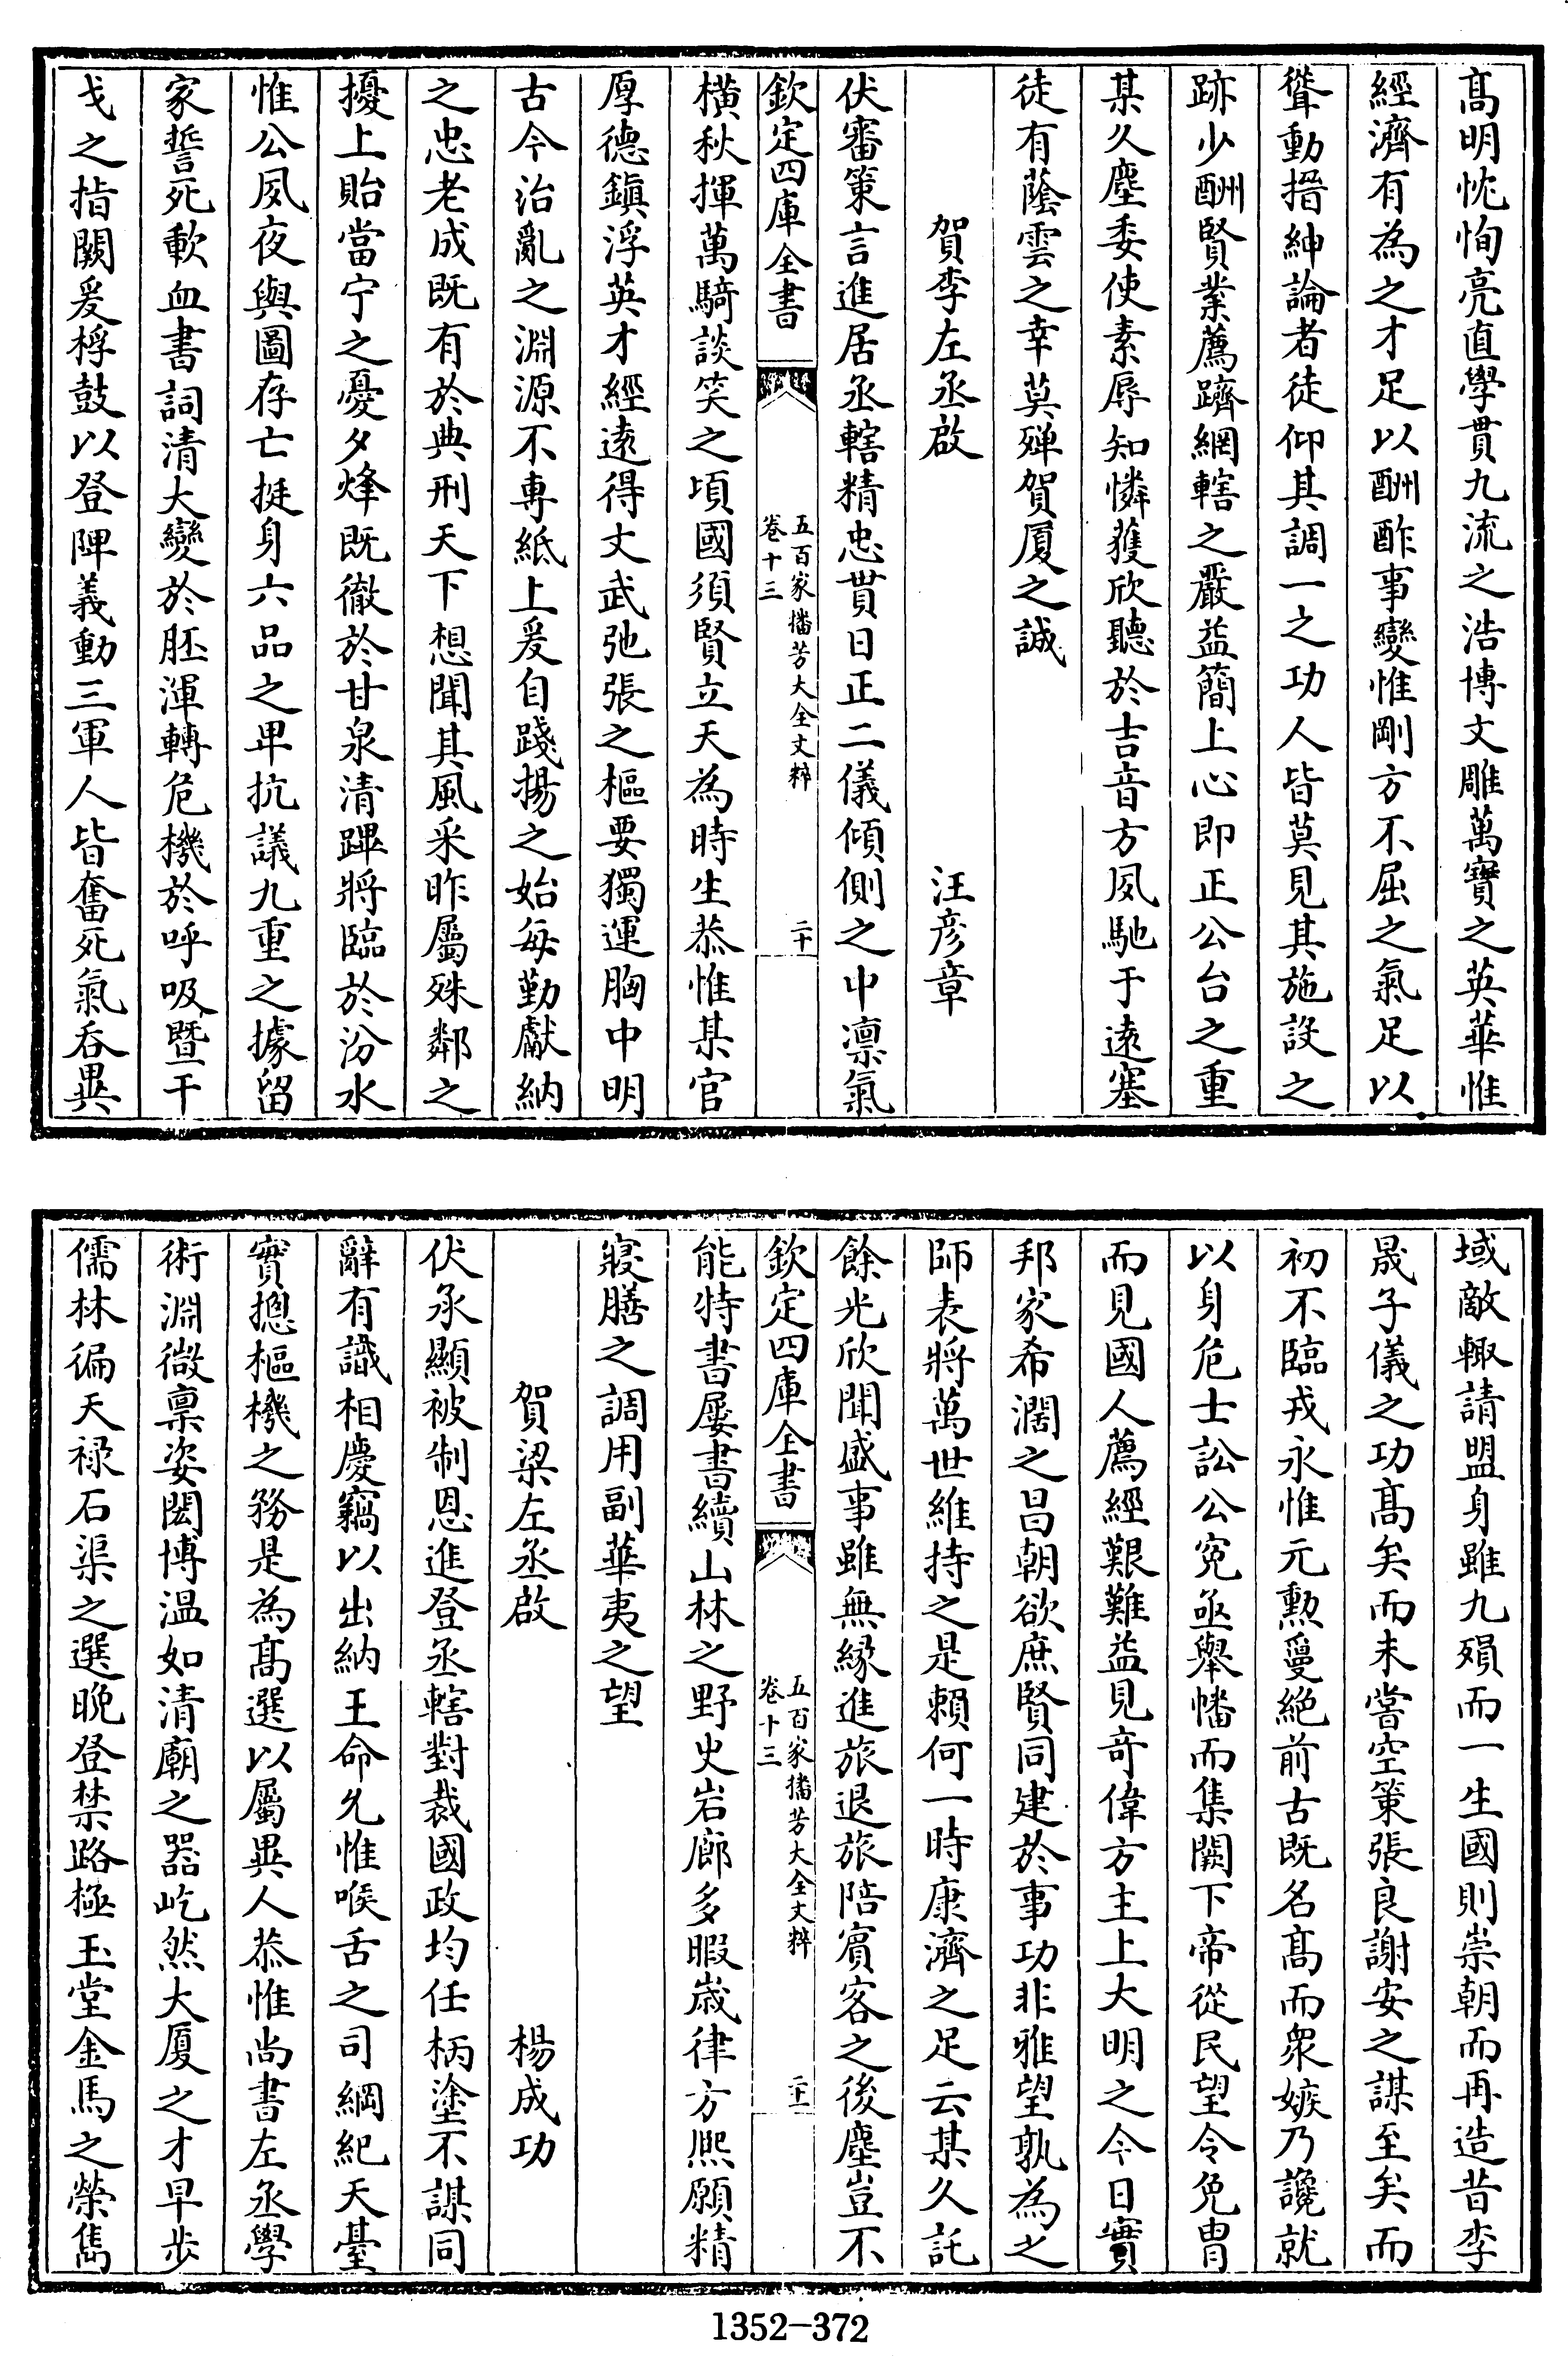 髙明忱恂亮直學貫九流之浩博文雕萬寶之英華惟
經濟有為之才足以酬酢事變惟剛方不屈之氣足以
聳動搢紳論者徒仰其調一之功人皆莫見其施設之
跡少酬賢業薦躋綱轄之嚴益簡上心即正公台之重
某久塵委使素辱知憐獲欣聽於吉音方夙馳于逺塞
徒有蔭雲之幸莫殫賀厦之誠
賀李左丞啟　汪彦章
伏審策言進居丞轄精忠貫日正二儀傾側之中凛氣
欽定四庫全書
五百家播芳大全文粹
卷十三
二十
横秋揮萬騎談笑之頃國須賢立天為時生恭惟某官
厚德鎮浮英才經逺得文武弛張之樞要獨運胸中明
古今治亂之淵源不專紙上爰自踐揚之始每勤獻納
之忠老成既有於典刑天下想聞其風采昨屬殊鄰之
擾上貽當宁之憂夕烽既徹於甘泉清蹕將臨於汾水
惟公夙夜與圖存亡挺身六品之卑抗議九重之據留
家誓死歃血書詞清大變於胚渾轉危機於呼吸暨干
戈之指闕爰桴鼓以登陴義動三軍人皆奮死氣吞異
域敵輙請盟身雖九殞而一生國則崇朝而再造昔李
晟子儀之功髙矣而未嘗空策張良謝安之謀至矣而
初不臨戎永惟元勲敻絶前古既名髙而衆嫉乃讒就
以身危士訟公寃亟舉幡而集闕下帝從民望令免胄
而見國人薦經艱難益見竒偉方主上大明之今日實
邦家希濶之昌朝欲庶賢同建於事功非雅望孰為之
師表將萬世維持之是賴何一時康濟之足云某久託
餘光欣聞盛事雖無縁進旅退旅陪賓客之後塵豈不
欽定四庫全書
五百家播芳大全文粹
卷十三
二十一
能特書屢書續山林之野史岩廊多暇嵗律方熙願精
寢膳之調用副華夷之望
賀梁左丞啟　楊成功
伏承顯被制恩進登丞轄對裁國政均任柄塗不謀同
辭有識相慶竊以出納王命允惟喉舌之司綱紀天臺
實揔樞機之務是為髙選以屬異人恭惟尚書左丞學
術淵微禀姿閎博温如清廟之器屹然大厦之才早歩
儒林徧天禄石渠之選晩登禁路極玉堂金馬之榮雋
1352-372